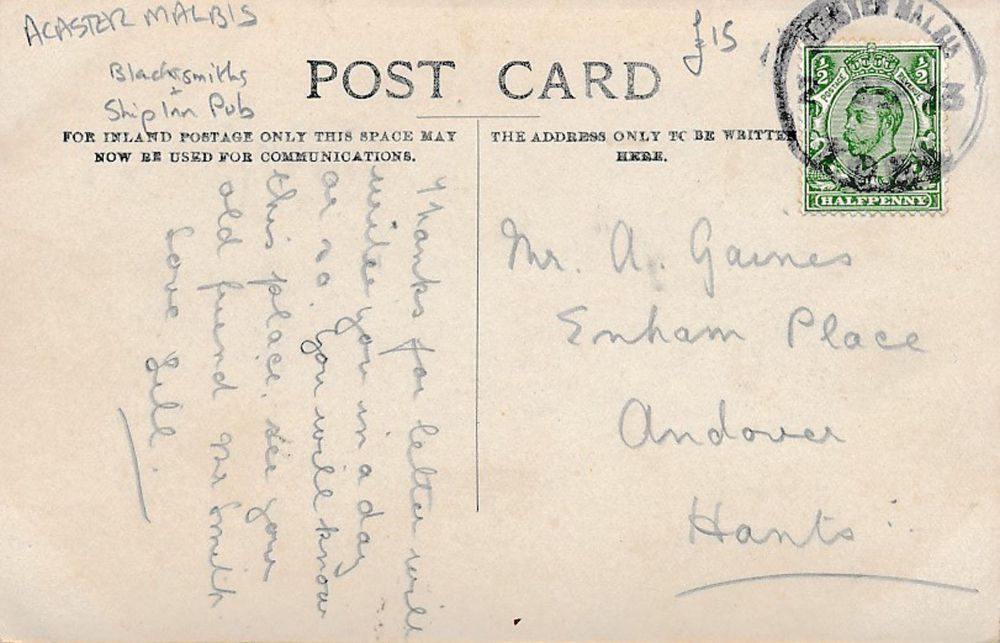 ACASTER MALBIS
£15
Blacksmiths
+
Ship Inn Pub
POST CARD
FOR INLAND POSTAGE ONLY THIS SPACE MAY
NOW BE USED FOR COMMUNICATIONS.
THE ADDRESS ONLY TO BE WRITTEN
HERE.
ACASTER MALBIS
13
½ ½
POSTAGE REVENUE
HALFPENNY
Thanks for letter will
write you in a day
or so. You will know
this place. see your
old friend Mr Smith
Love
Mr. A. Gaines
Enham Place
Andover
Hants